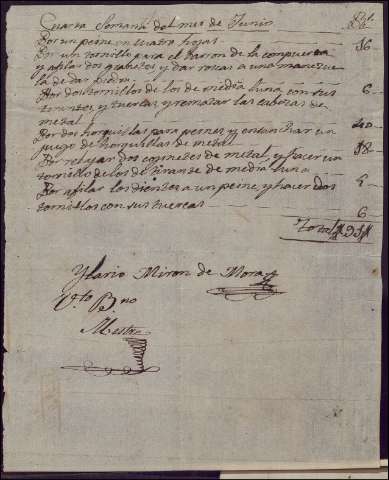 Cuarta Semana del mes de Junio
Por un peine en cuatro hojas 16
Por un tornillo para el barron de la compuerta
y afilar dos grabetes y dar rosca a una manezue
la de dar piedra 6
Por dos tornillos de los de media luna con sus
tirantes y tuercas, y rematar las cabezas de
metal 40
Por dos horquillas para peines, y ensanchar un
juego de horquillas de metal 18
Por rebajar dos cojinetes de metal, y hacer un
tornillo de los de tirante de media luna
Por afilar los dientes a un peine, y hacer dos
tornillos con sus tuercas 6
Total
Ylario Miron de Mora
Vto Bno
Mestre